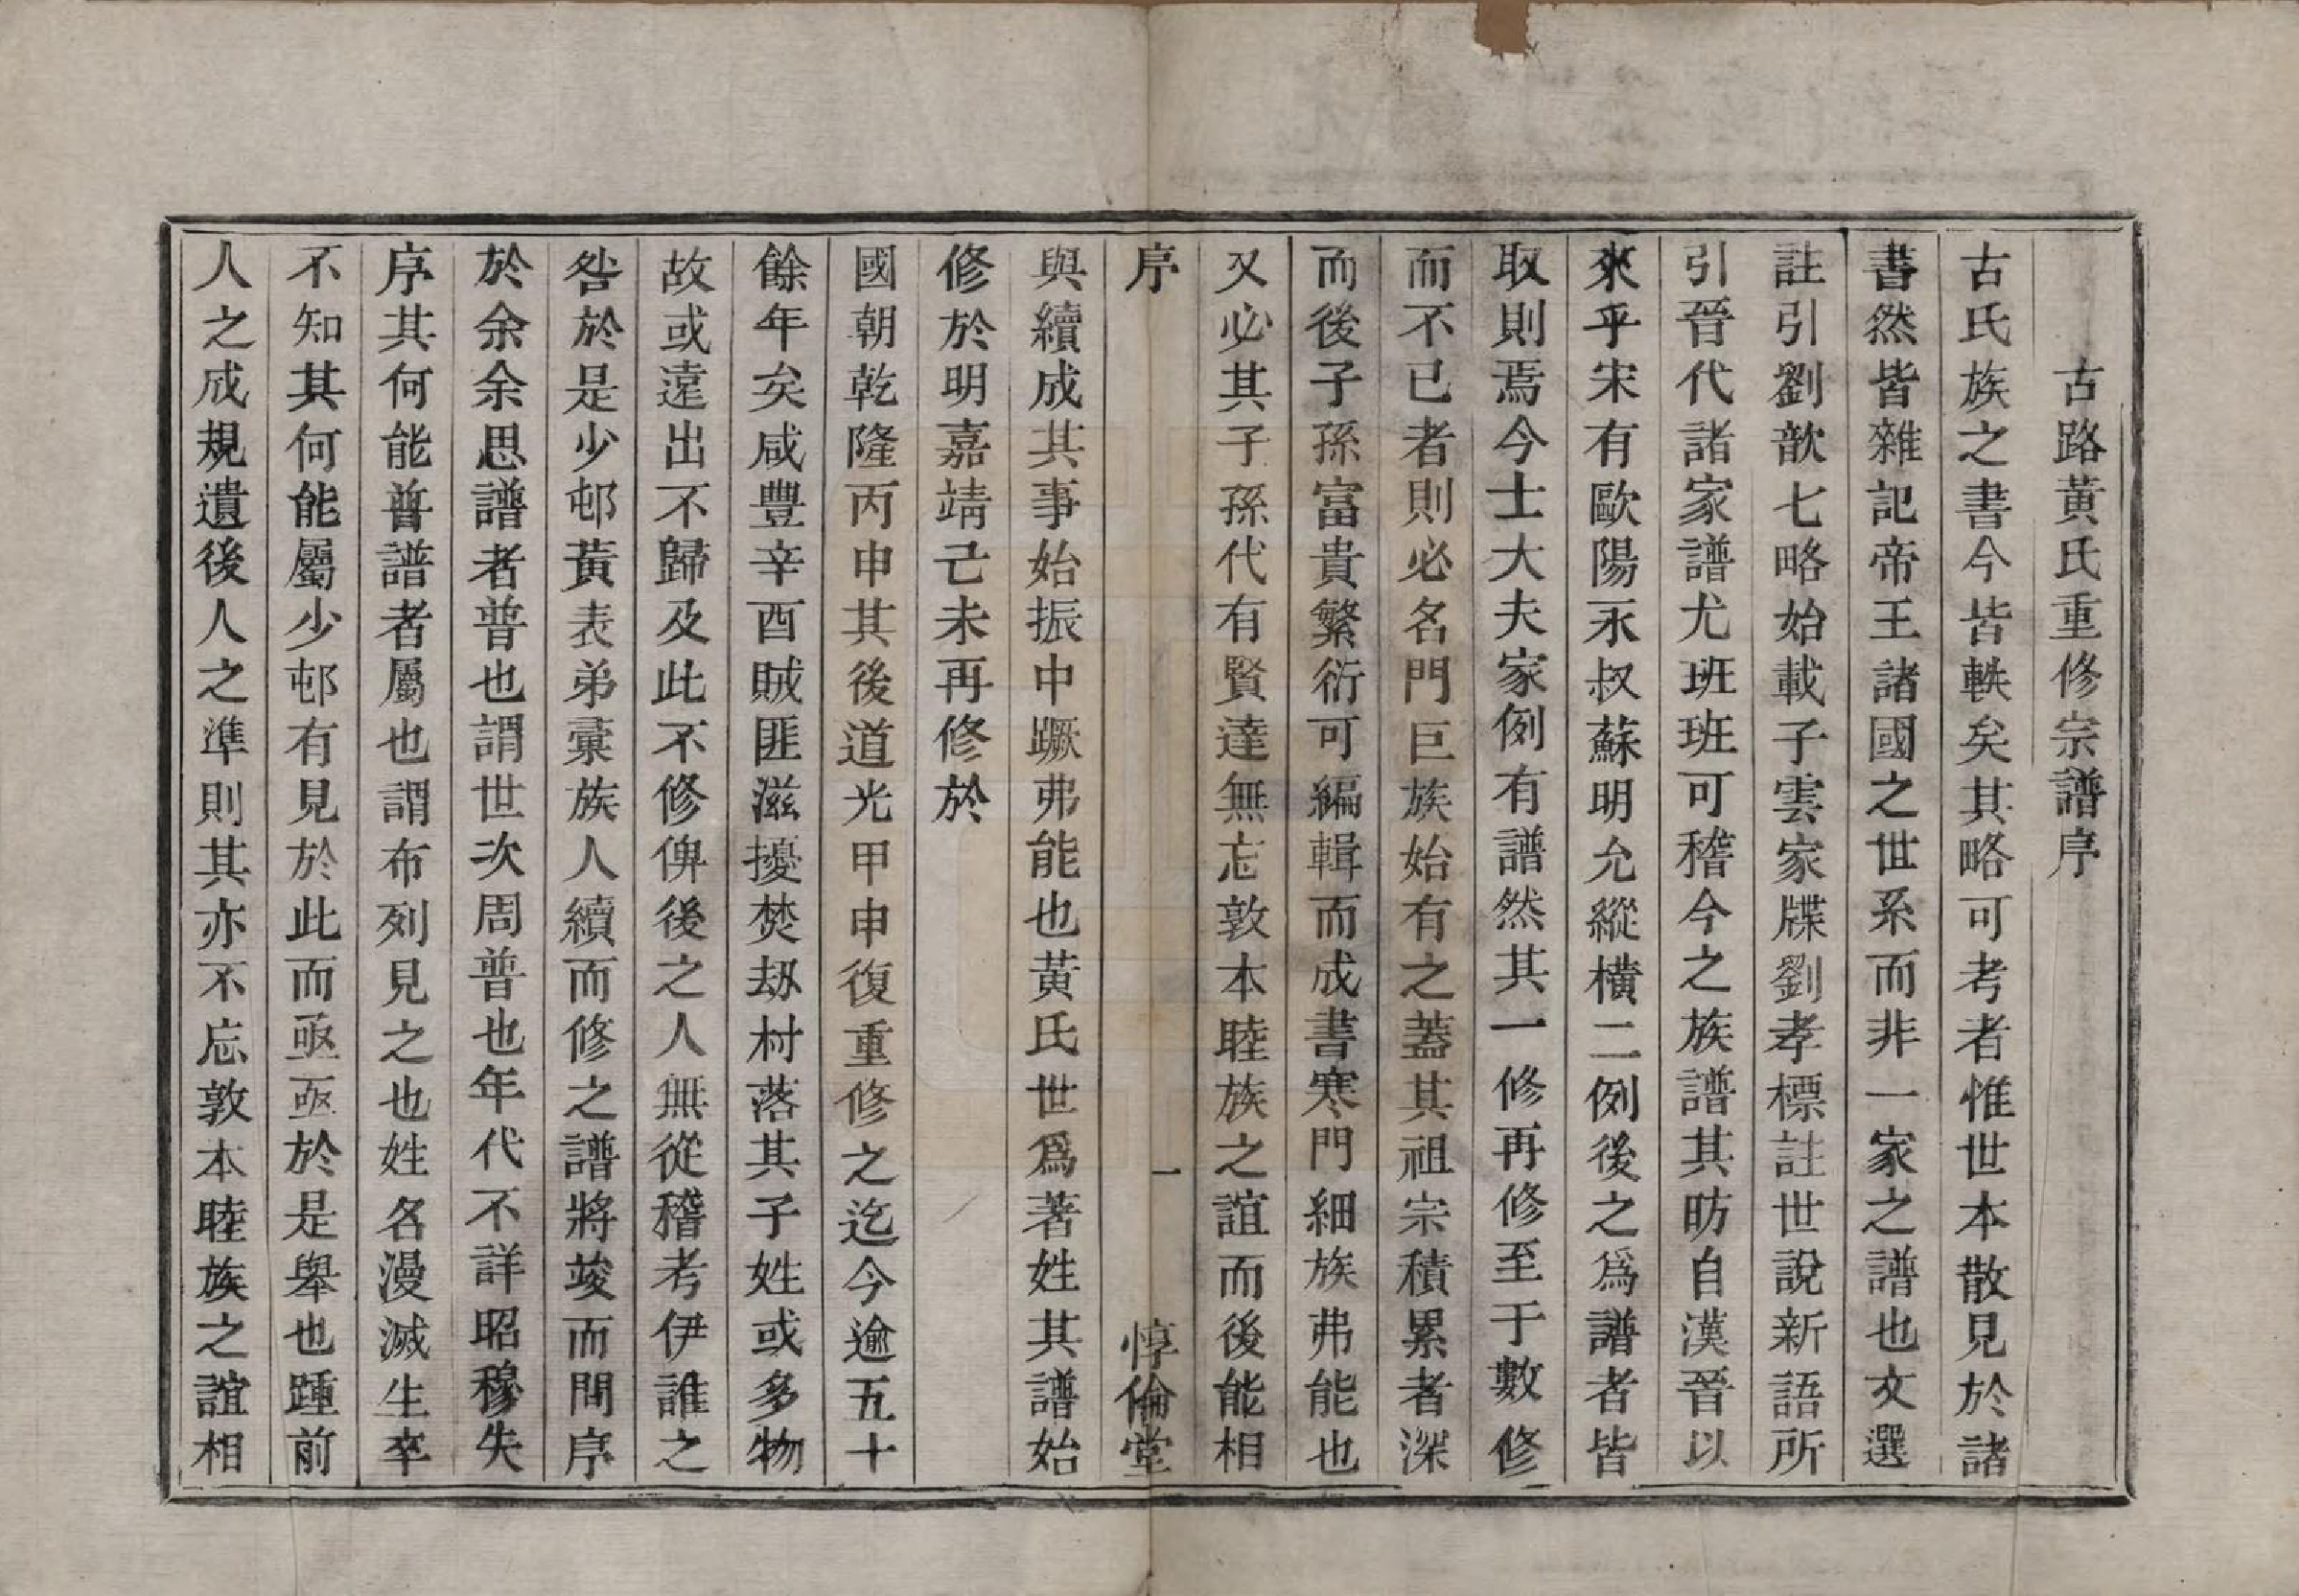 古路黃氏重修宗譜序
古氏族之書今皆軼矣其略可考者惟世本散見於諸
書然皆雜記帝王諸國之世系而非一家之譜也文選
註引劉歆七略始載子雲家牒劉孝標註世說新語所
引晉代諸家譜尤班班可稽今之族譜其昉自漢晉以
來乎宋有歐陽永叔蘇明允縱橫二例後之爲譜者皆
取則焉今士大夫家例有譜然其一修再修至于數修
而不已者則必名門巨族始有之蓋其祖宗積累者深
而後子孫富貴繁衍可編輯而成書寒門細族弗能也
又必其子孫代有賢達無忘敦本睦族之誼而後能相
序 一 惇倫堂
與續成其事始振中蹶弗能也黃氏世爲著姓其譜始
修於明嘉靖己未再修於
國朝乾隆丙申其後道光甲申復重修之迄今逾五十
餘年矣咸豐辛酉賊匪滋擾焚刼村落其子姓或多物
故或遠出不歸及此不修俾後之人無從稽考伊誰之
咎於是少邨黃表弟彙族人續而修之譜將竣而問序
於余余思譜者普也謂世次周普也年代不詳昭穆失
序其何能普譜者屬也謂布列見之也姓名漫滅生卒
不知其何能屬少邨有見於此而亟亟於是舉也踵前
人之成規遺後人之準則其亦不忘敦本睦族之誼相